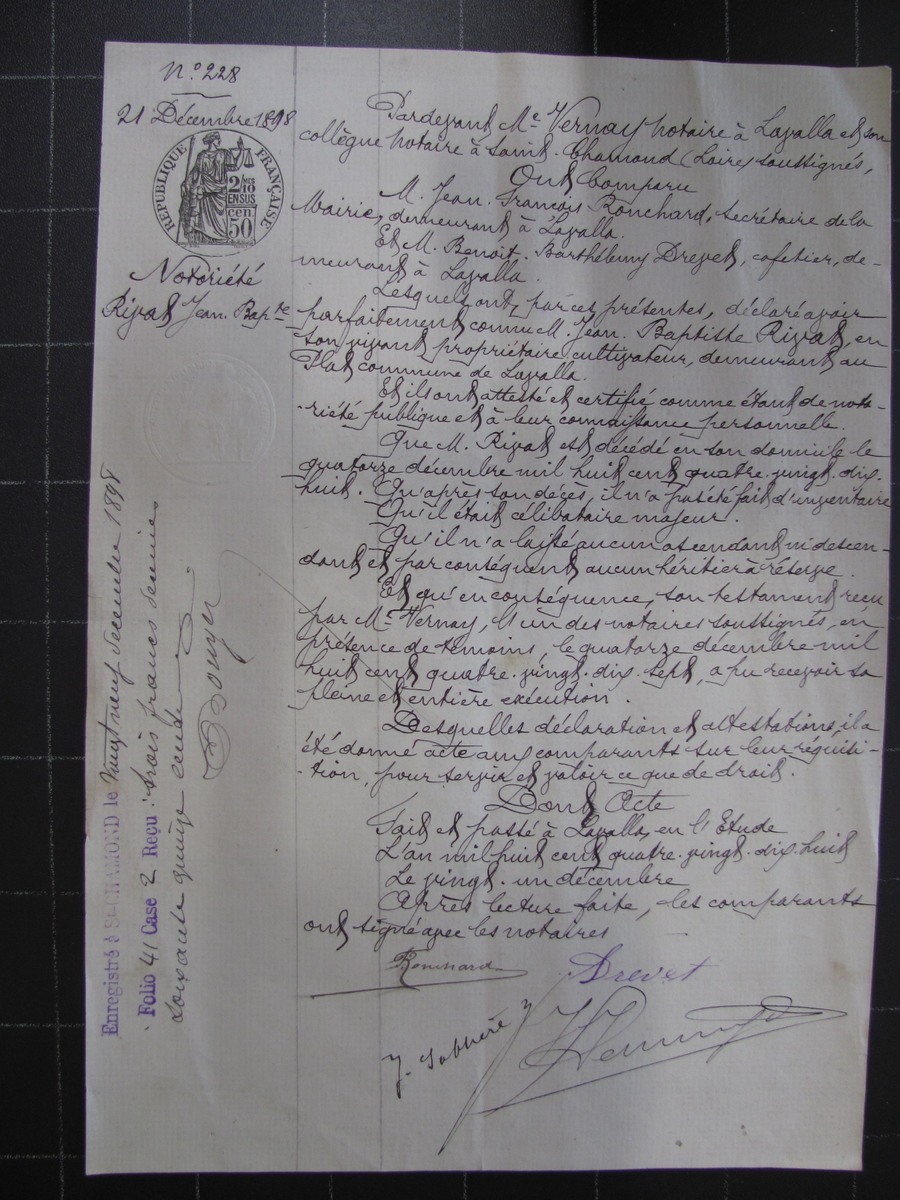 N.° 228
21 Décembre 1898
RÉPUBLIQUE FRANÇAISE
2/10
EN SUS
cen.
50
Notoriété
Rivat Jean. Bapte
Pardevant Me Vernay notaire à Lavalla et son
collègue notaire à Saint. Chamond (Loire) soussignés,
Ont Comparu
M. Jean. François Ronchard, secrétaire de la
Mairie, demeurant à Lavalla.
Et M. Benoit. Barthélemy Drevet, cafetier, de-
meurant à Lavalla.
Lesquels ont, par ces présentes, déclaré avoir
parfaitement connu M. Jean. Baptiste Rivat, en
son vivant propriétaire cultivateur, demeurant au
Plat commune de Lavalla.
Et ils ont attesté et certifié comme étant de noto-
-riété publique et à leur connaissance personnelle.
Que M. Rivat est décédé en son domicile le
quatorze décembre mil huit cent quatre. vingt. dix.
huit. Qu'après son décès, il n'a pas été fait d'inventaire
Qu'il était célibataire majeur.
Qu'il n'a laissé aucun ascendant ni descen-
dant et par conséquent aucun héritier à réserve.
Et qu'en conséquence, son testament reçu
par Me Vernay, l'un des notaires soussignés, en
présence de témoins, le quatorze décembre mil
huit cent quatre. vingt. dix. sept, a pu recevoir sa
pleine et entière exécution.
Desquelles déclaration et attestations, il a
été donné acte aux comparants sur leur réquisi-
-tion, pour servir et valoir ce que de droit.
Dont Acte
Fait et passé à Lavalla, en l'Etude
L'an mil huit cent quatre. vingt. dix. huit
Le vingt. un décembre
Après lecture faite, les comparants
ont signé avec les notaires
Ronchard
Drevet
Vernay
Enregistré à St-CHAMOND le vingt neuf décembre 1898
Folio 41 Case 2 Reçu : trois francs décimes
soixante quinze cent.